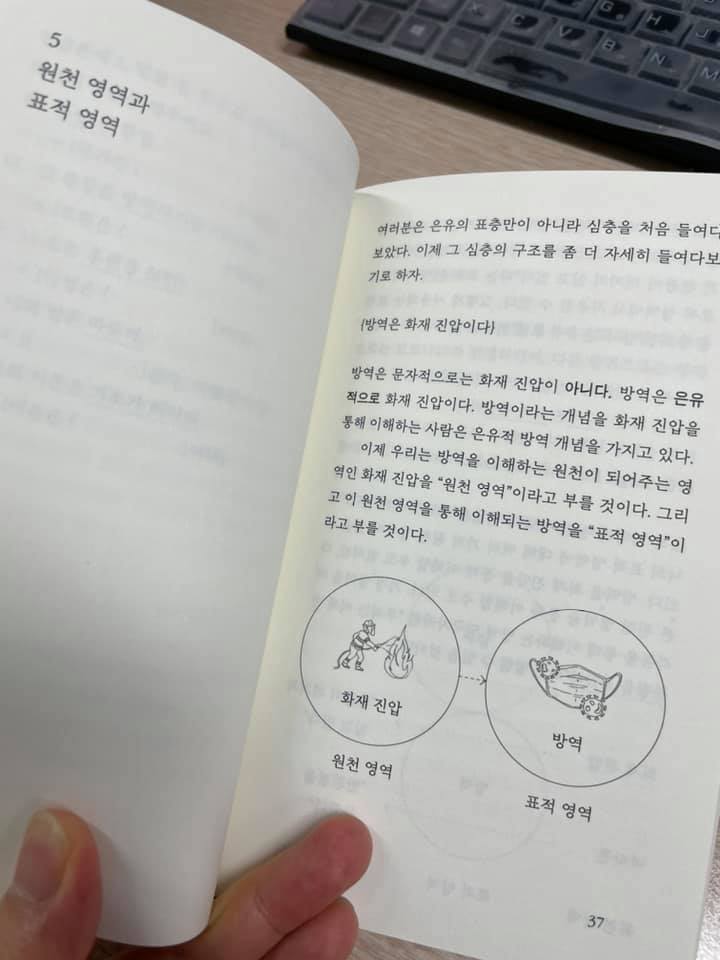 5
원천 영역과
표적 영역
여러분은 은유의 표층만이 아니라 심층을 처음 들여다
보았다. 이제 그 심층의 구조를 좀 더 자세히 들여다보
기로 하자.
{방역은 화재 진압이다}
방역은 문자적으로는 화재 진압이 아니다. 방역은 은유
적으로 화재 진압이다. 방역이라는 개념을 화재 진압을
통해 이해하는 사람은 은유적 방역 개념을 가지고 있다.
이제 우리는 방역을 이해하는 원천이 되어주는 영
역인 화재 진압을 “원천 영역”이라고 부를 것이다. 그리
고 이 원천 영역을 통해 이해되는 방역을 “표적 영역”이
라고 부를 것이다.
화재 진압
원천 영역
방역
표적 영역
37
G H J K L
C V B N M